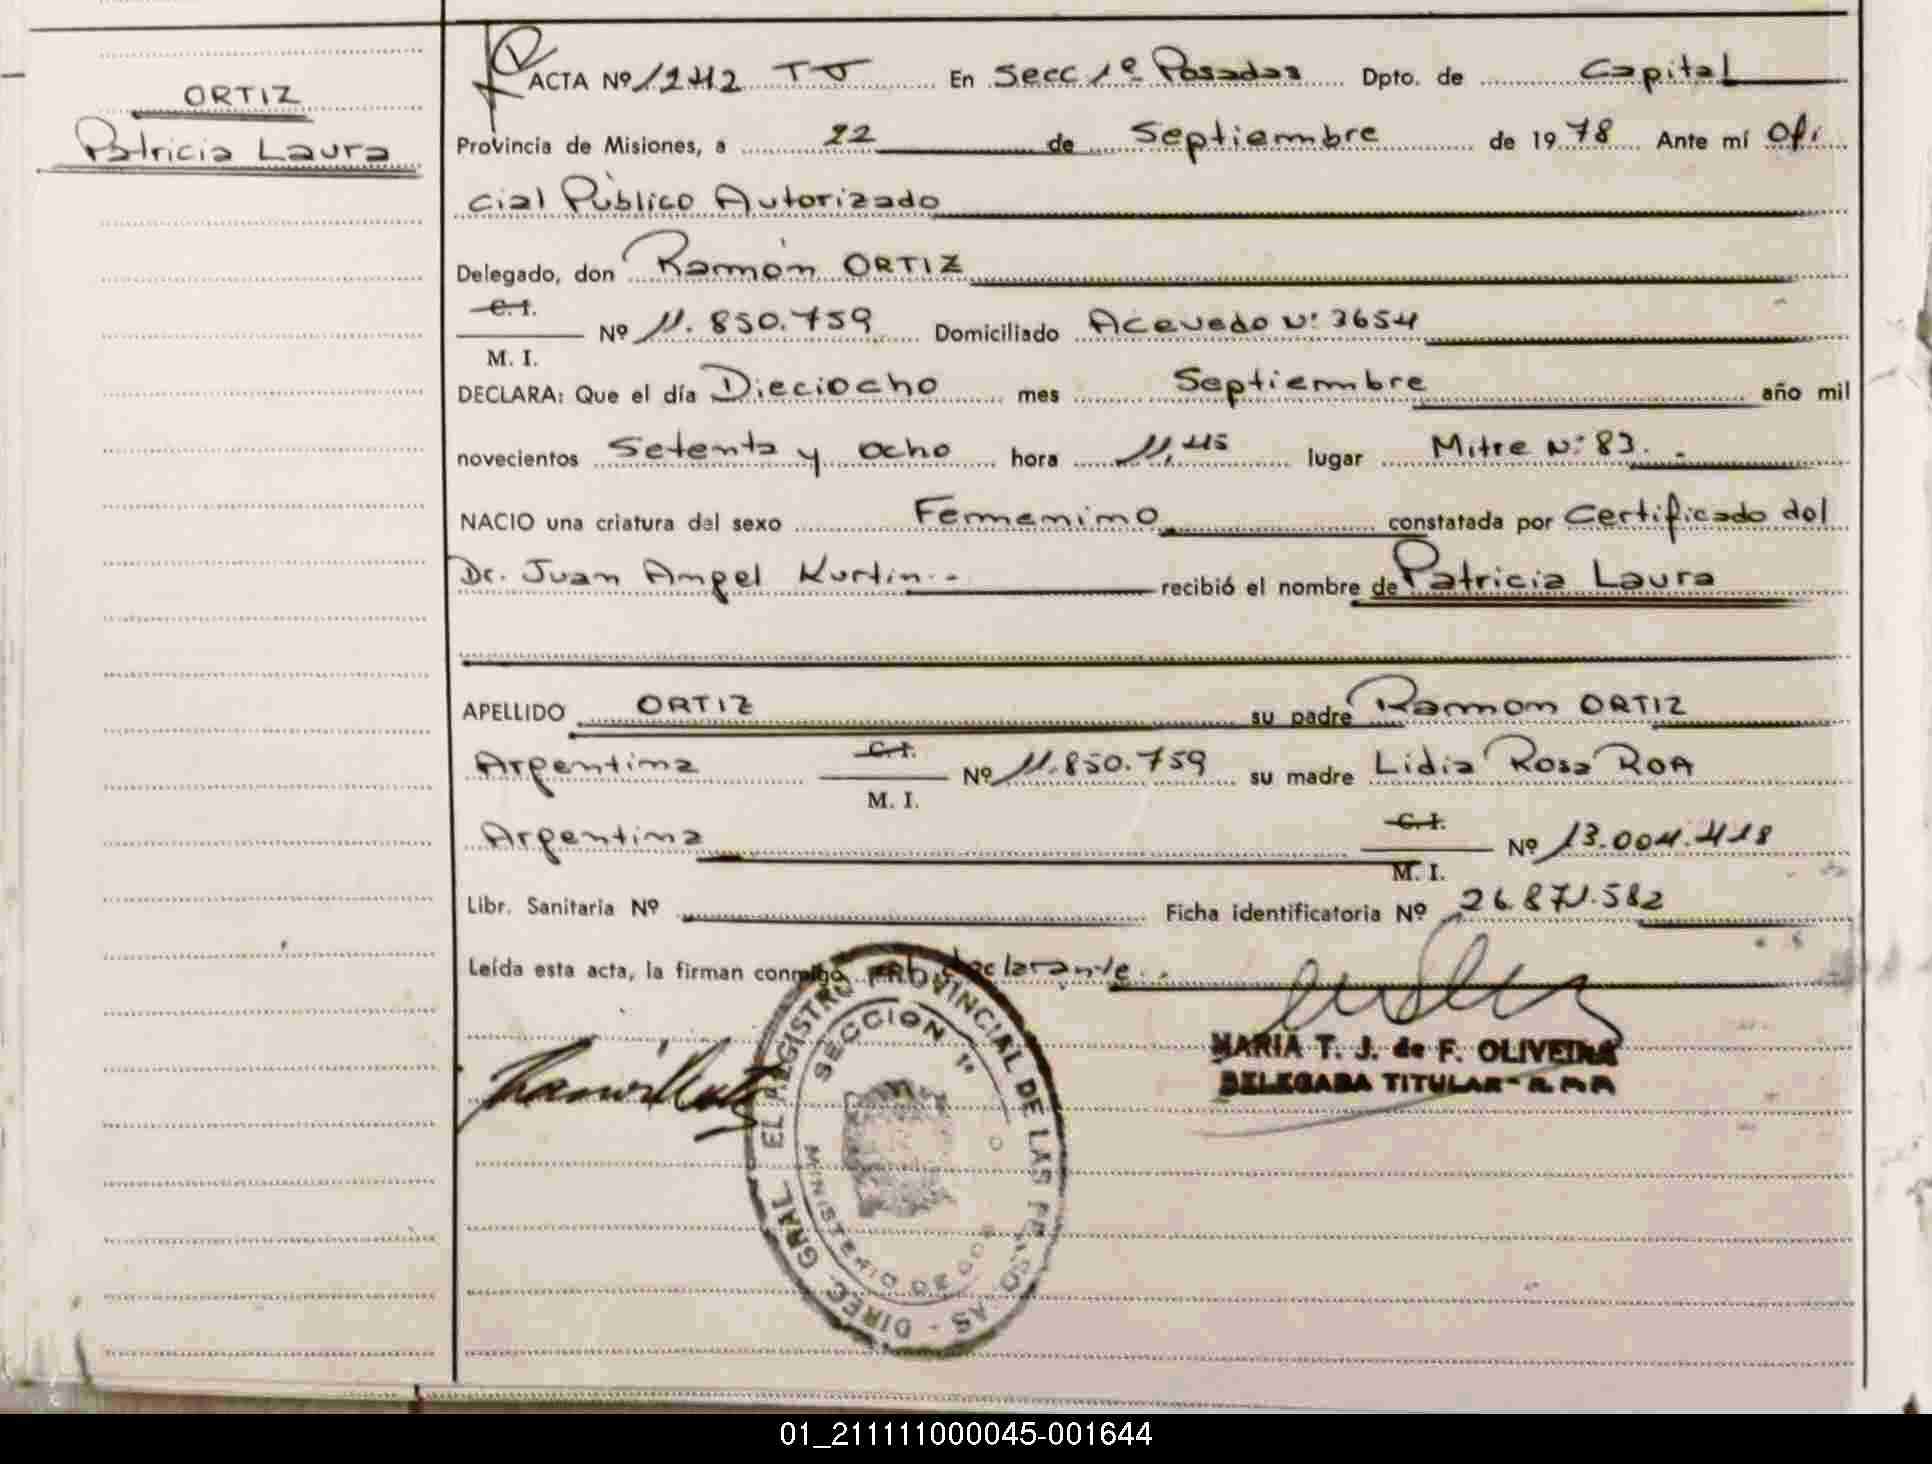 ORTIZ
Patricia Laura
ACTA Nº 1242 TJ En Secc 1º Posadas Dpto. de Capital
Provincia de Misiones, a 22 de Septiembre de 1978 Ante mí Ofi
cial Público Autorizado
Delegado, don Ramón ORTIZ
C. I.
Nº 11.850.759 Domiciliado Acevedo Nº 3654
M. I.
DECLARA: Que el día Dieciocho mes Septiembre año mil
novecientos Setenta y ocho hora 11,45 lugar Mitre Nº 83.-
NACIO una criatura del sexo Femenino constatada por Certificado del
Dr. Juan Angel Kurtin.- recibió el nombre de Patricia Laura
APELLIDO ORTIZ su padre Ramon ORTIZ
Argentina C. I. Nº 11.850.759 su madre Lidia Rosa ROA
M. I.
Argentina C. I. Nº 13.004.418
M. I.
Libr. Sanitaria Nº Ficha identificatoria Nº 26.871.582
Leída esta acta, la firman conmigo el declarante.-
MARIA T. J. de F. OLIVEIRA
DELEGADA TITULAR - R.P.P.
DIREC. GRAL. EL REGISTRO PROVINCIAL DE LAS PERSONAS
SECCION 1ª
MINISTERIO DE GOB
01_211111000045-001644